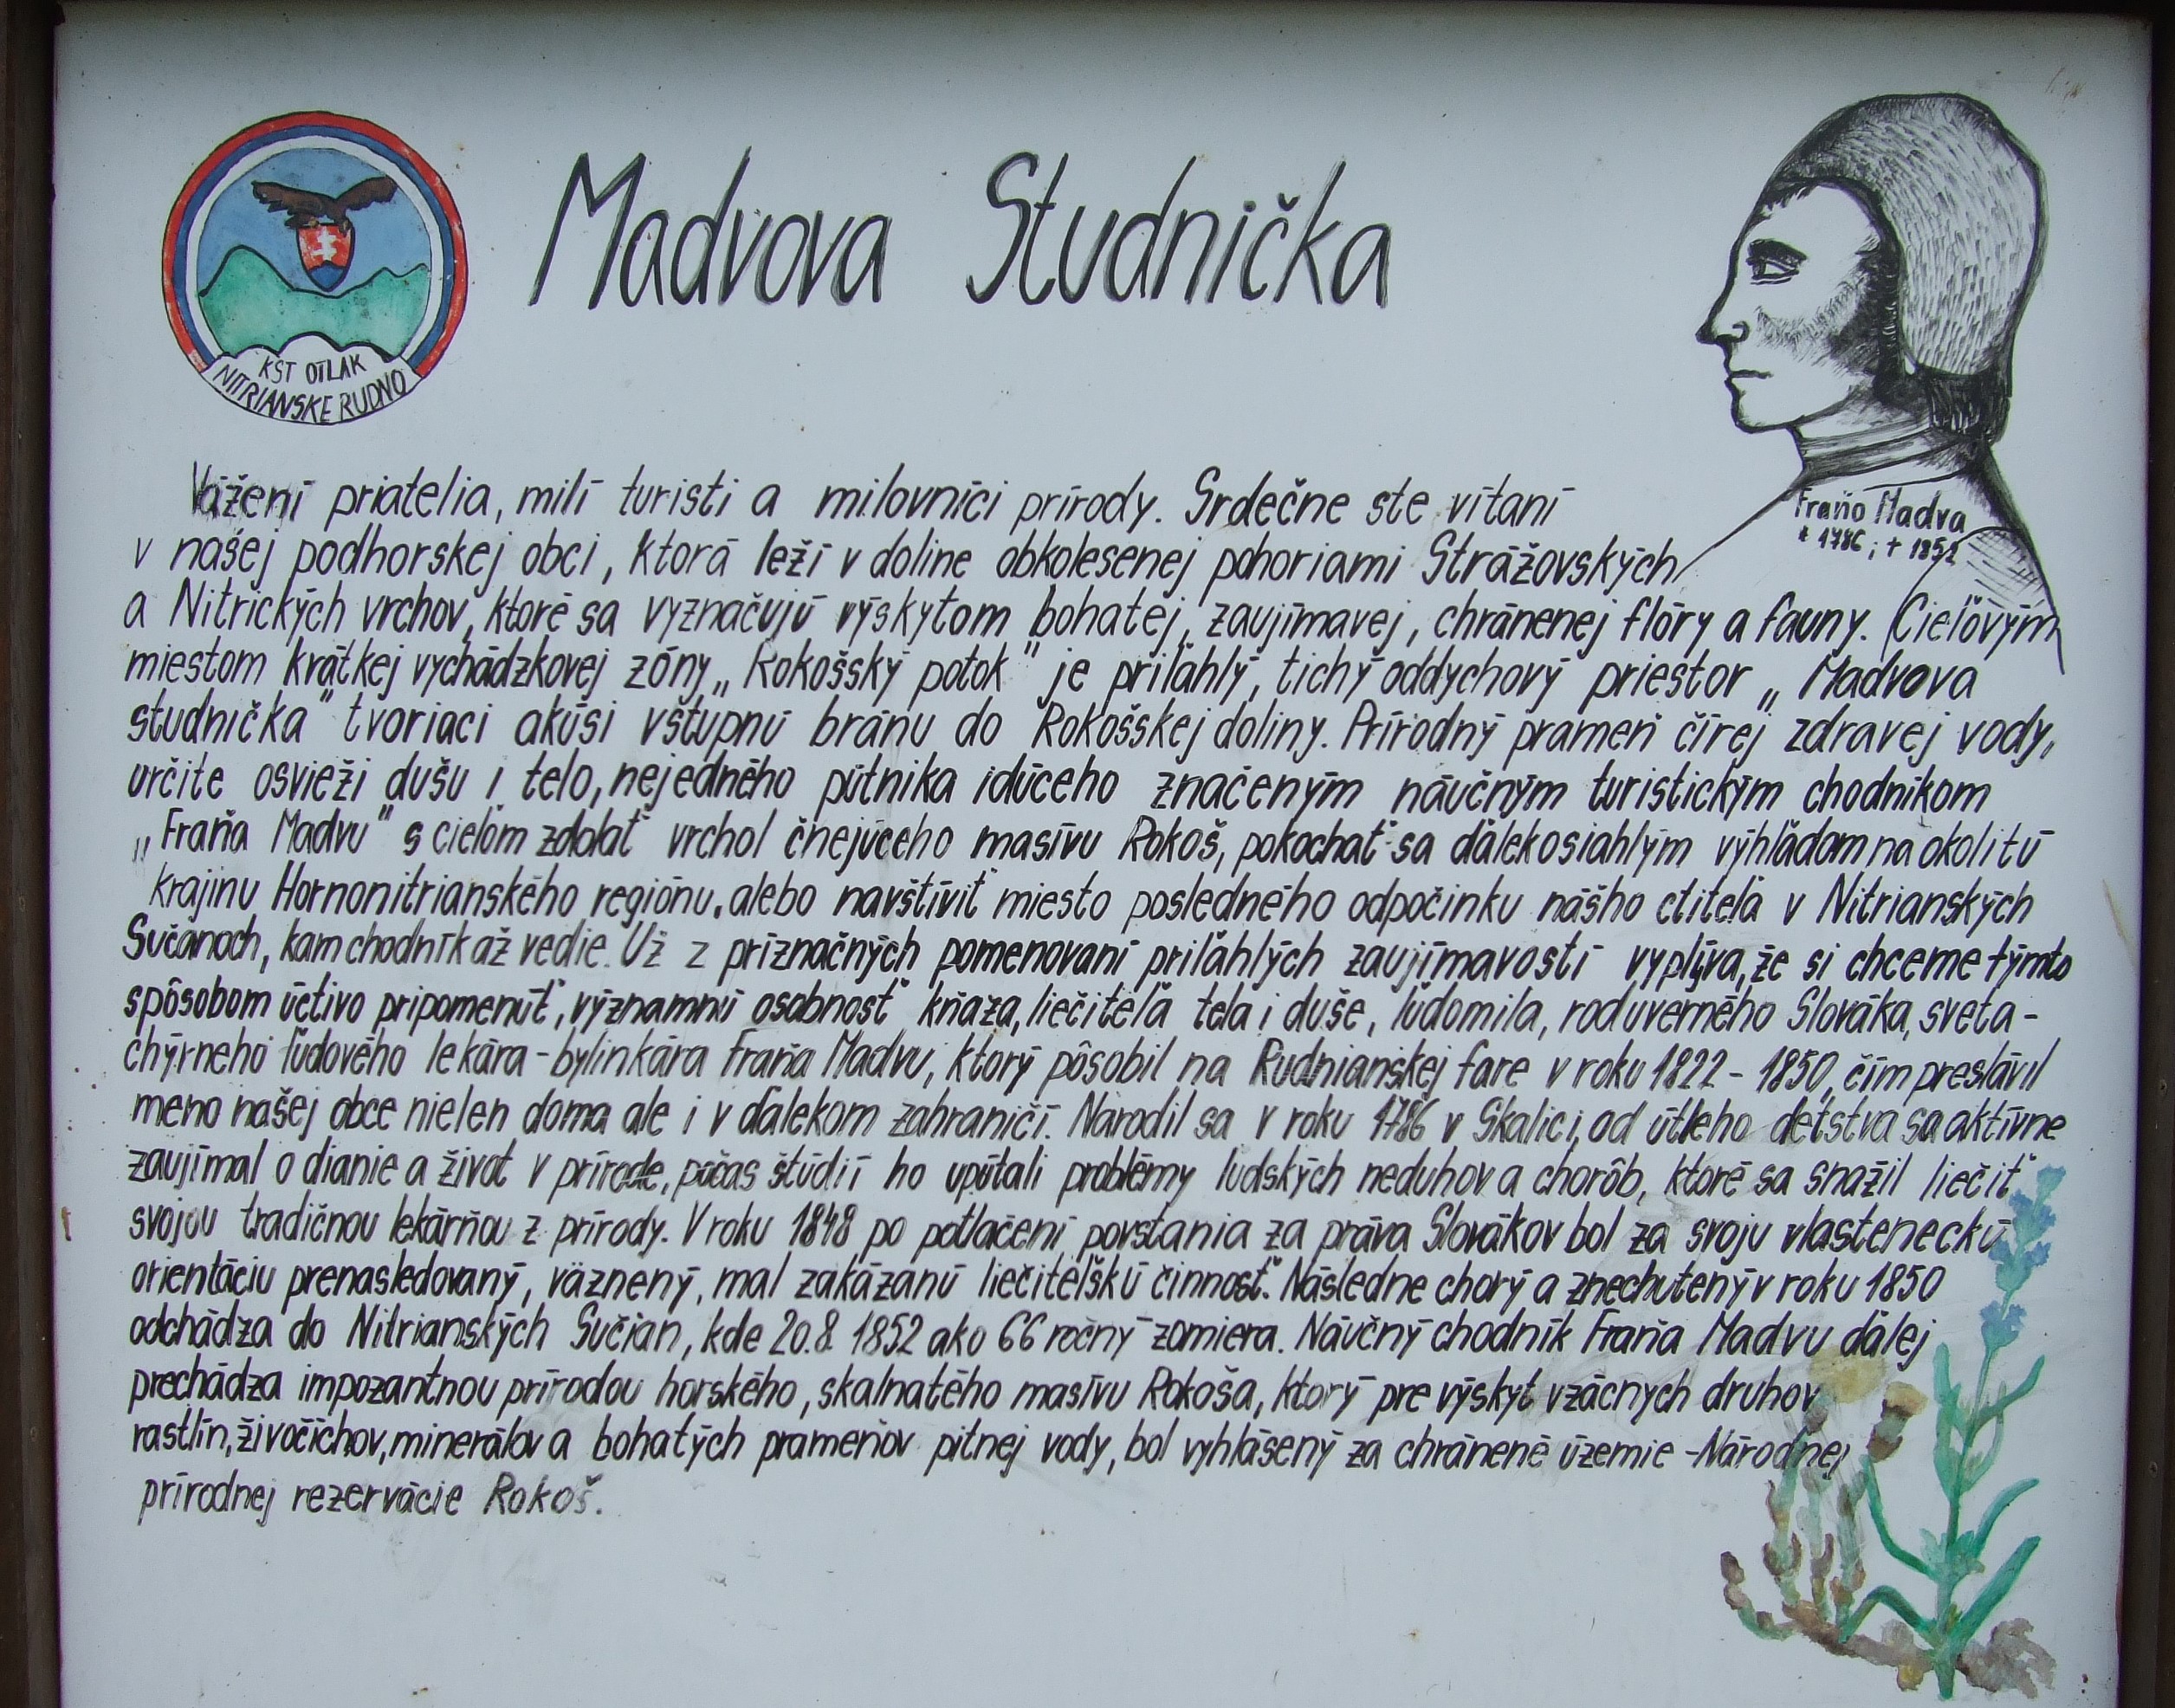 Madvova Studnička
KST OTLAK
NITRIANSKE RUDNO
Fraňo Madva
* 1786; † 1852
Vážení priatelia, milí turisti a milovníci prírody. Srdečne ste vítaní
v našej podhorskej obci, ktorá leží v doline obkolesenej pohoriami Strážovských
a Nitrických vrchov, ktoré sa vyznačujú výskytom bohatej, zaujímavej, chránenej flóry a fauny. Cieľovým
miestom krátkej vychádzkovej zóny „Rokošský potok" je priľahlý, tichý oddychový priestor „Madvova
studnička" tvoriaci akúsi vstupnú bránu do Rokošskej doliny. Prírodný prameň čírej zdravej vody,
určite osvieži dušu i telo, nejedného pútnika idúceho značeným náučným turistickým chodníkom
„Fraňa Madvu" s cieľom zdolať vrchol čnejúceho masívu Rokoš, pokochať sa ďalekosiahlym výhľadom na okolitú
krajinu Hornonitrianského regiónu, alebo navštíviť miesto posledného odpočinku nášho ctiteľa v Nitrianských
Sučanoch, kam chodník až vedie. Už z príznačných pomenovaní priľahlých zaujímavostí vyplýva, že si chceme týmto
spôsobom úctivo pripomenúť, významnú osobnosť kňaza, liečiteľa tela i duše, ľudomila, roduverného Slováka, sveta-
chýrneho ľudového lekára-bylinkára Fraňa Madvu, ktorý pôsobil na Rudnianskej fare v roku 1822 - 1850, čím preslávil
meno našej obce nielen doma ale i v ďalekom zahraničí. Narodil sa v roku 1786 v Skalici, od útleho detstva sa aktívne
zaujímal o dianie a život v prírode, počas štúdií ho upútali problémy ľudských neduhov a chorôb, ktoré sa snažil liečiť
svojou tradičnou lekárňou z prírody. V roku 1848 po potlačení povstania za práva Slovákov bol za svoju vlasteneckú
orientáciu prenasledovaný, väznený, mal zakázanú liečiteľskú činnosť. Následne chorý a znechutený v roku 1850
odchádza do Nitrianských Sučian, kde 20.8. 1852 ako 66 ročný zomiera. Náučný chodník Fraňa Madvu ďalej
prechádza impozantnou prírodou horského, skalnatého masívu Rokoša, ktorý pre výskyt vzácnych druhov
rastlín, živočíchov, minerálov a bohatých prameňov pitnej vody, bol vyhlásený za chránené územie -Národnej
prírodnej rezervácie Rokoš.